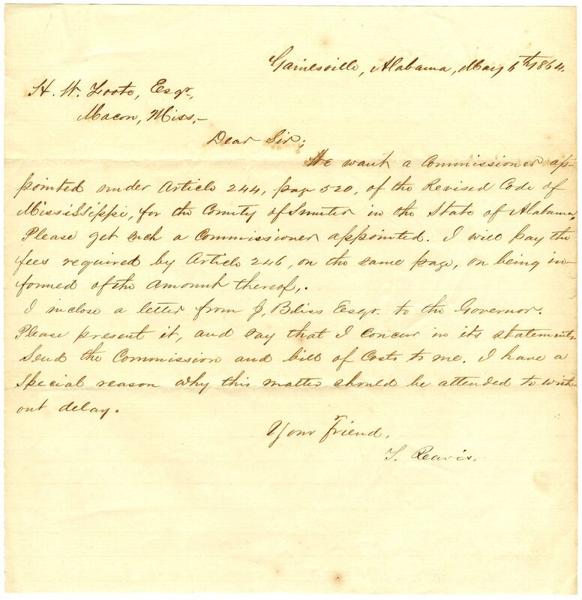 Gainesville, Alabama, May 6th 1864.
H. W. Foote, Esqr.,
Macon, Miss.-
Dear Sir;
We want a Commissioner ap-
pointed under Article 244, page 520, of the Revised Code of
Mississippi, for the County of Sumter in the State of Alabama,
Please get such a Commissioner appointed. I will pay the
fees required by Article 246, on the same page, on being in-
formed of the Amount thereof,.
I inclose a letter from J. Bliss Esqr. to the Governor.
Please present it, and say that I concur in its statements.
Send the Commission and bill of Costs to me. I have a
Special reason why this matter should be attended to with-
out delay.
Your Friend,
T. Reavis.